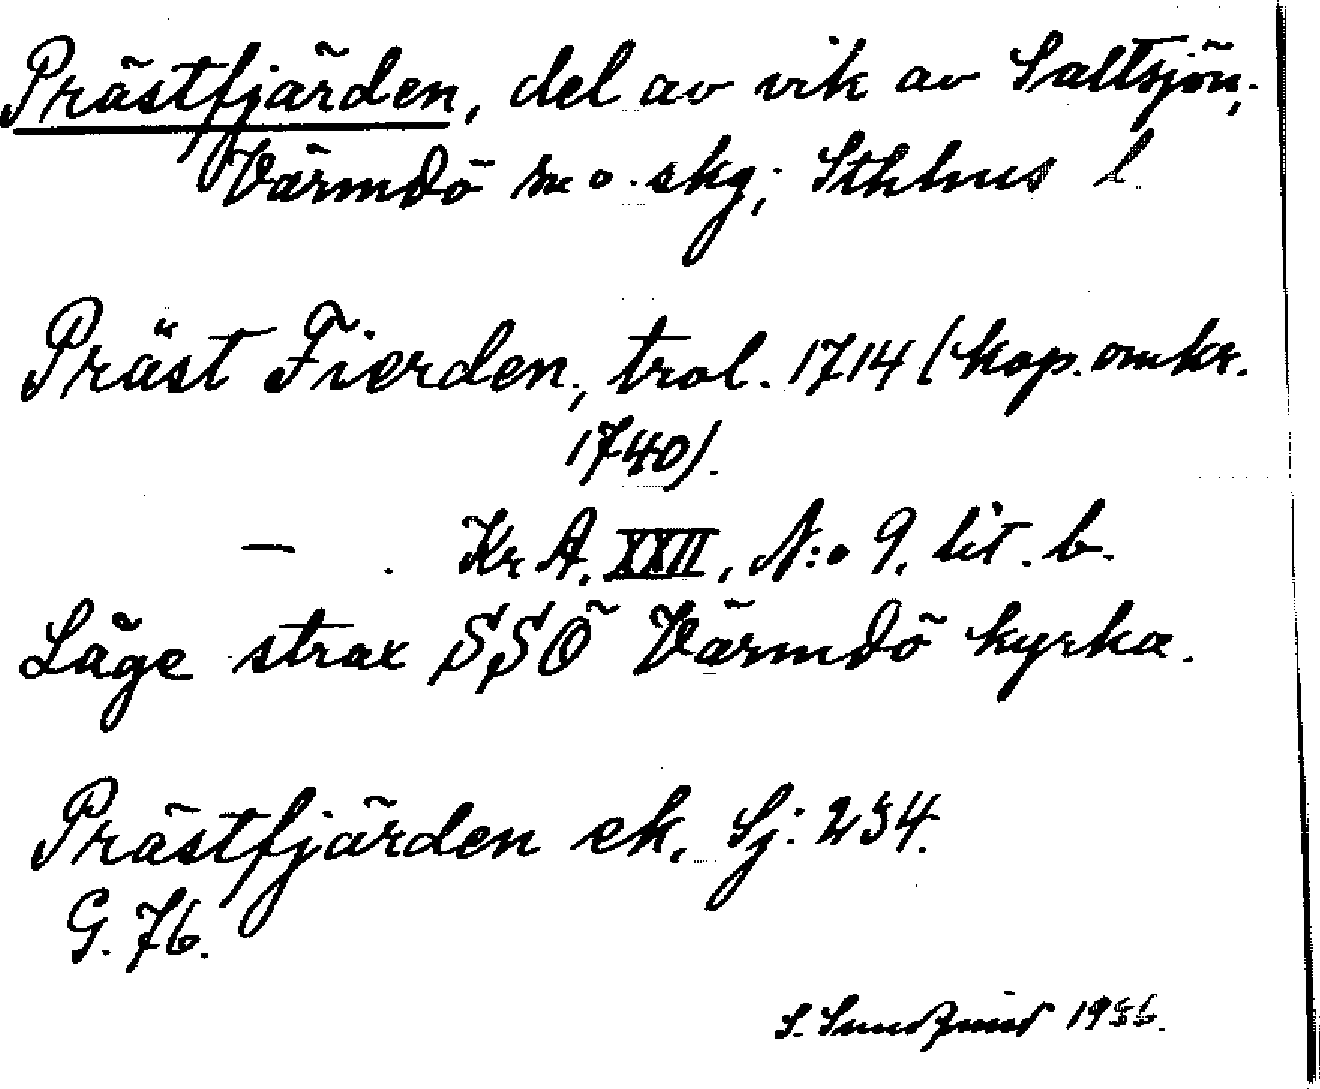 Prästfjärden, del av vik av Saltsjön;
Värmdö sn o. skg; Sthlms l.
Präst Fierden, trol. 1714 (kop. omkr.
1740).
— . Kr A. XXII, N:o 9, lit. b.
Läge strax SSÖ Värmdö kyrka.
Prästfjärden ek. Sj: 234.
G. 76.
S. 19